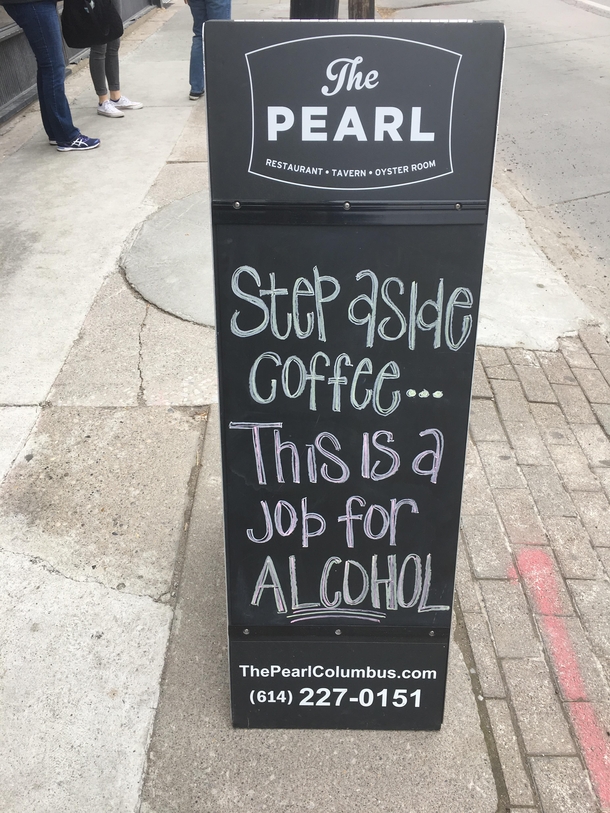 The
PEARL
RESTAURANT • TAVERN • OYSTER ROOM
Step aside
coffee...
This is a
Job for
ALCOHOL
ThePearlColumbus.com
(614) 227-0151